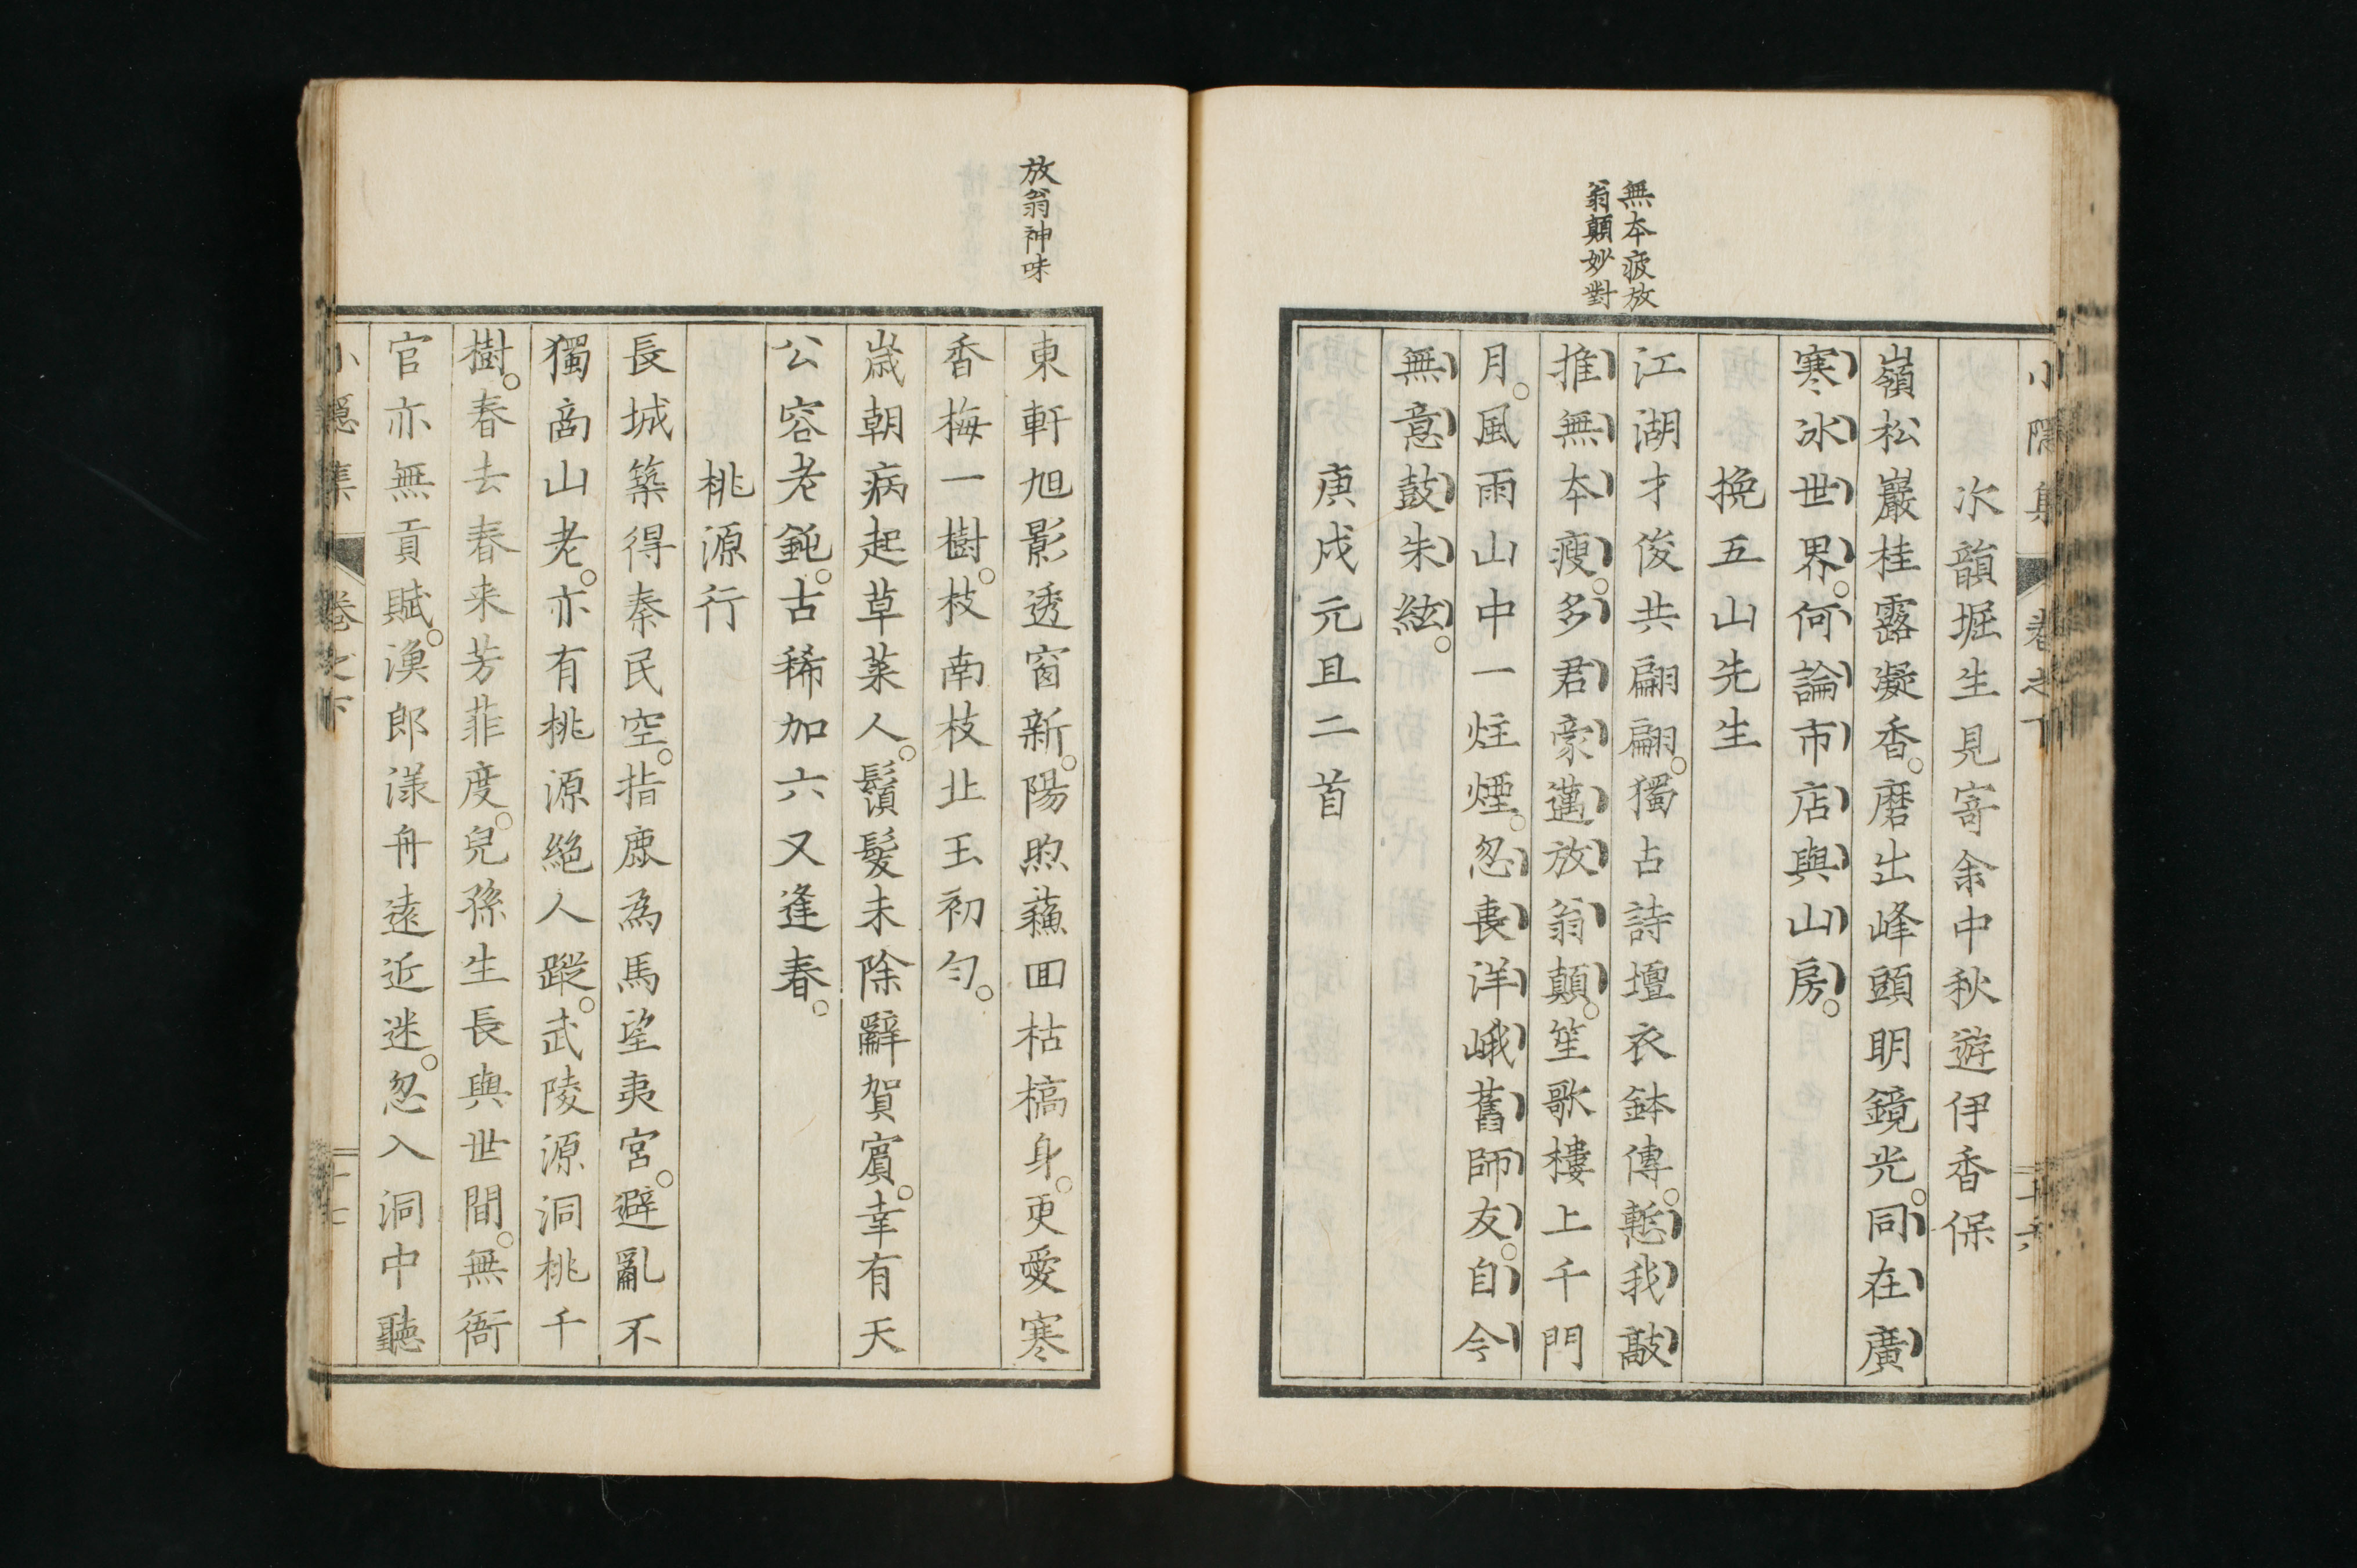 小隱集 卷之下 十六
次韻堀生見寄余中秋遊伊香保
嶺松巖桂露凝香。磨出峰頭明鏡光。同在廣
寒冰世界。何論市店與山房。
挽五山先生
江湖才俊共翩翩。獨占詩壇衣鉢傳。慙我敲
推無本瘦。多君豪邁放翁顛。笙歌樓上千門
月。風雨山中一炷煙。忽喪洋峨舊師友。自今
無意鼓朱絃。
庚戌元旦二首
無本疲放
翁顛妙對
東軒旭影透窗新。陽煦蘓回枯槁身。更愛寒
香梅一樹。枝南枝北玉初勻。
歳朝病起草萊人。鬚髮未除辭賀賓。幸有天
公容老鈍。古稀加六又逢春。
桃源行
長城築得秦民空。指鹿為馬望夷宮。避亂不
獨商山老。亦有桃源絕人蹤。武陵源洞桃千
樹。春去春来芳菲度。兒孫生長與世間。無衙
官亦無貢賦。漁郎漾舟遠近迷。忽入洞中聽
放翁神味
小隱集 卷之下 十七